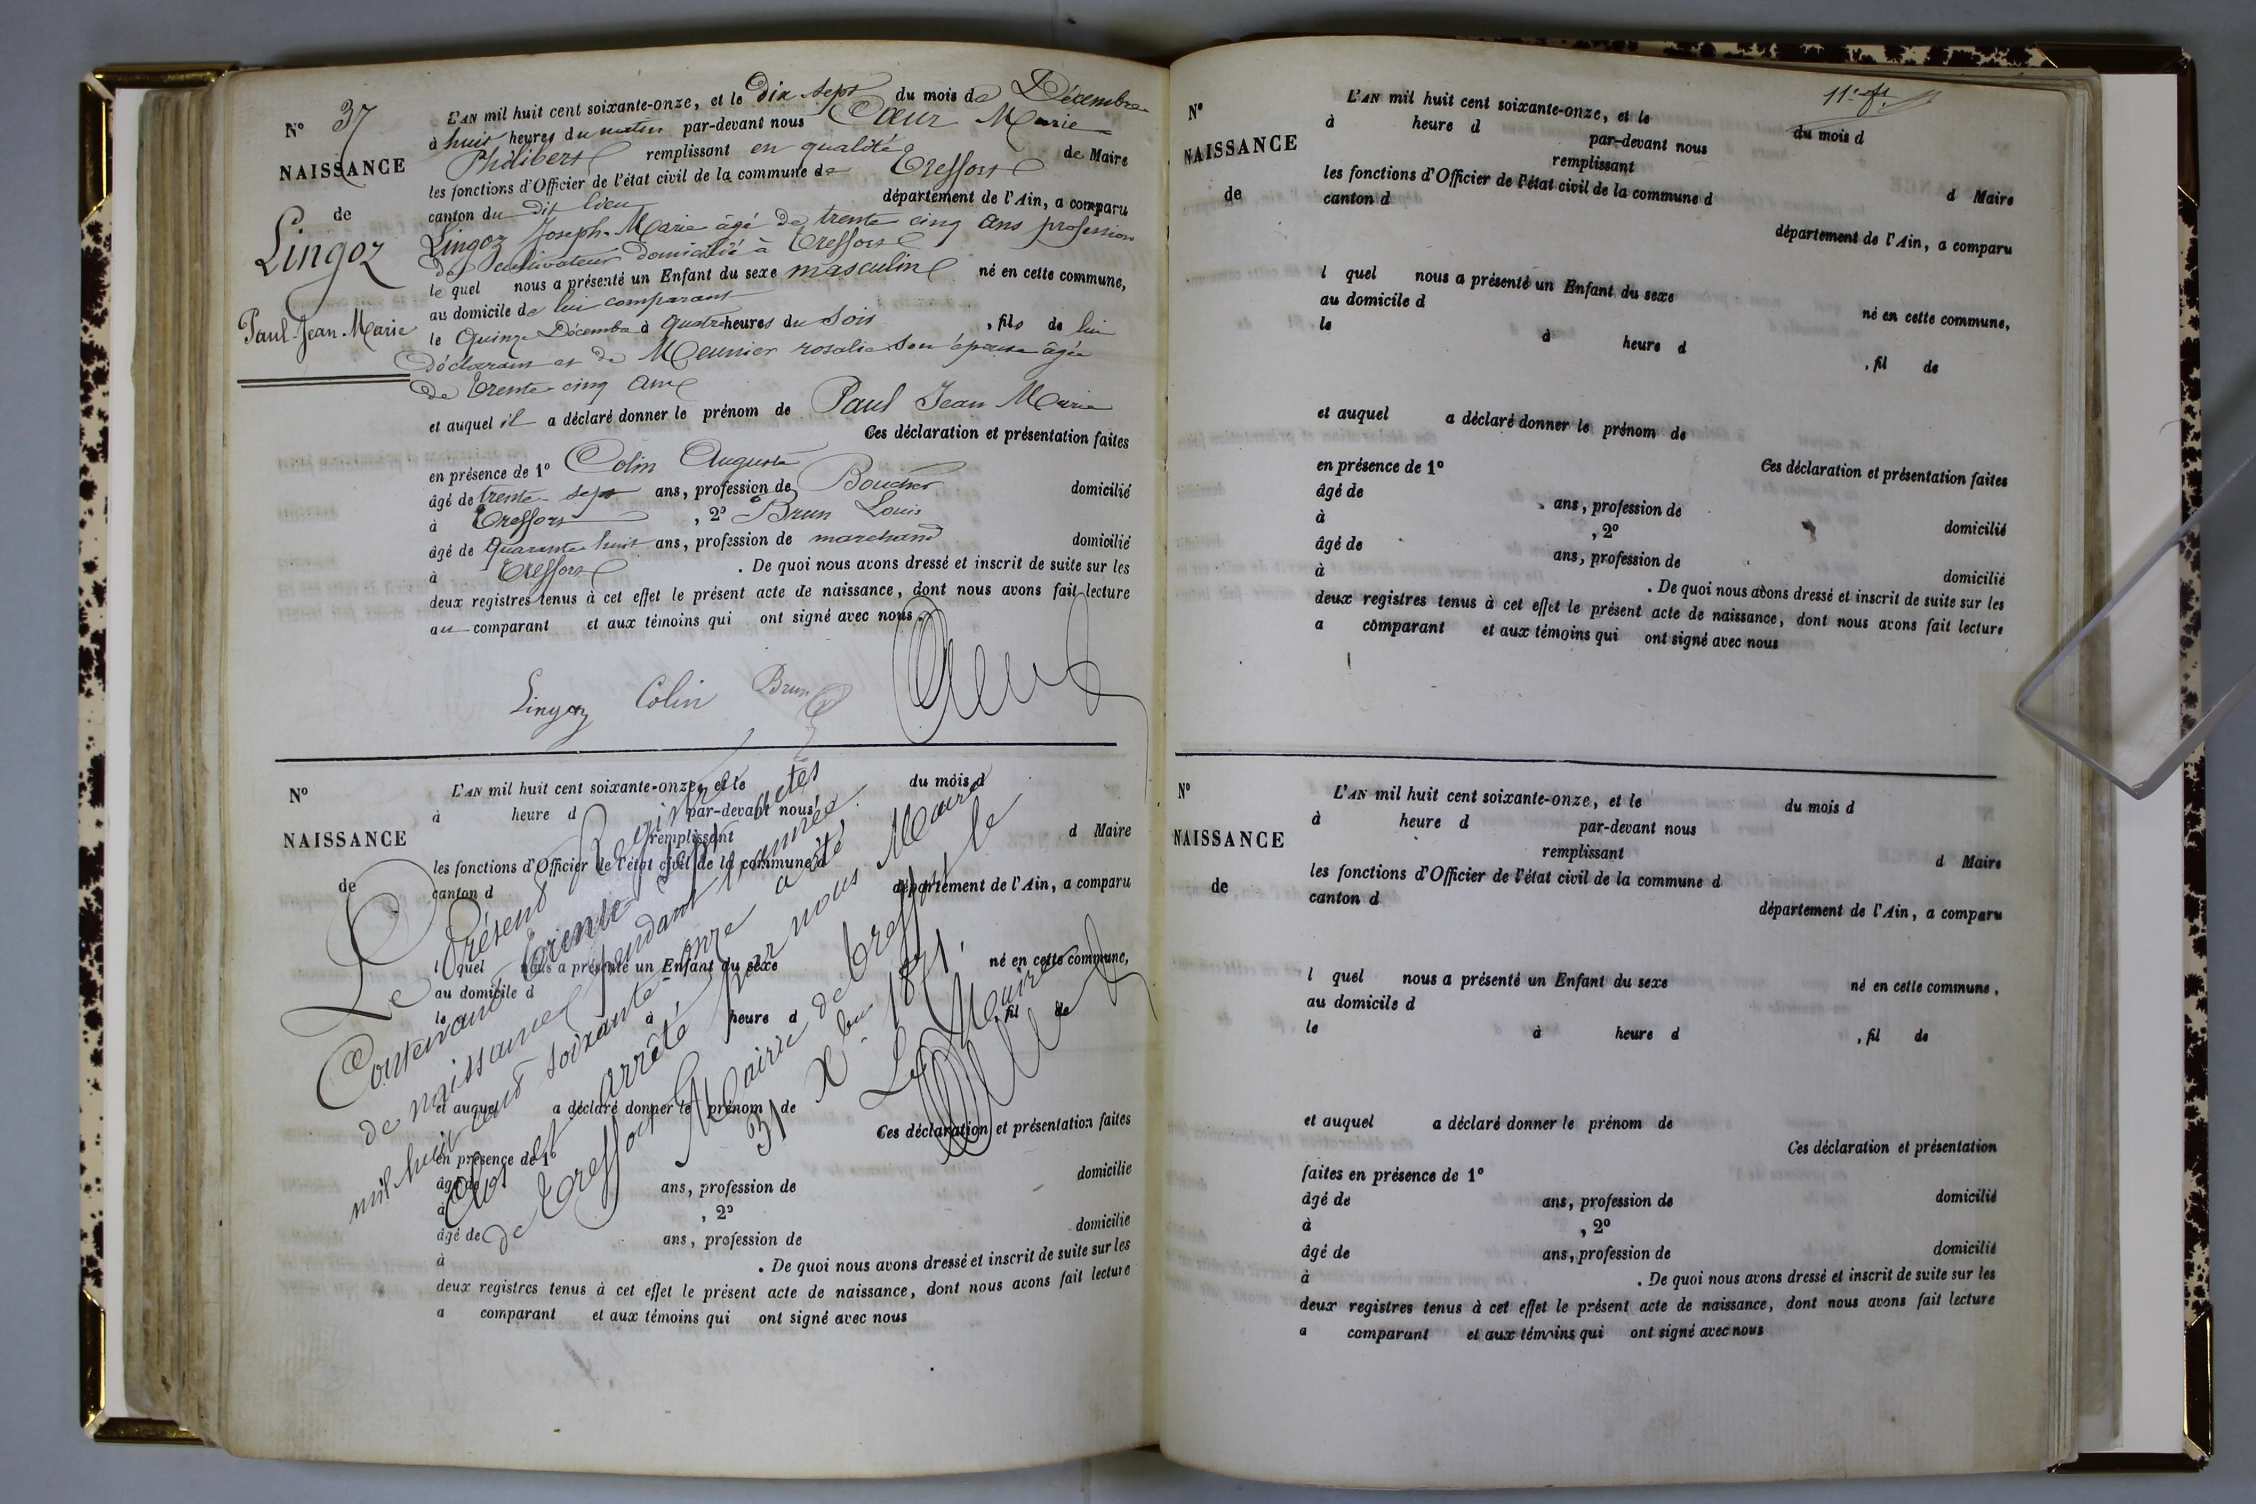 N° 37
NAISSANCE
de
Lingoz
Paul-Jean-Marie
L'AN mil huit cent soixante-onze, et le Dix sept du mois de Décembre
à huit heures du matin par-devant nous Cœur Marie
Philibert remplissant en qualité de Maire
les fonctions d'Officier de l'état civil de la commune de Treffort
canton du dit lieu département de l'Ain, a comparu
Lingoz Joseph-Marie âgé de trente cinq ans profession
de cultivateur domicilié à Treffort
le quel nous a présenté un Enfant du sexe masculin né en cette commune,
au domicile de lui comparant
le Quinze Décembre à quatre heures du soir, fils de lui
déclarant et de Meunier rosalie son épouse âgée
de trente cinq ans
et auquel il a déclaré donner le prénom de Paul Jean Marie
Ces déclaration et présentation faites
en présence de 1° Colin Auguste
âgé de trente-sept ans, profession de Boucher domicilié
à Treffort, 2° Brun Louis
âgé de quarante huit ans, profession de marchand domicilié
à Treffort. De quoi nous avons dressé et inscrit de suite sur les
deux registres tenus à cet effet le présent acte de naissance, dont nous avons fait lecture
au comparant et aux témoins qui ont signé avec nous.
Lingoz Colin Brun
N°
NAISSANCE
de
L'AN mil huit cent soixante-onze, et le du mois d
à heure d par-devant nous
remplissant d Maire
les fonctions d'Officier de l'état civil de la commune d
canton d département de l'Ain, a comparu
l quel nous a présenté un Enfant du sexe né en cette commune,
au domicile d
le à heure d , fil de
et auquel a déclaré donner le prénom de
Ces déclaration et présentation faites
en présence de 1°
âgé de ans, profession de domicilié
à , 2°
âgé de ans, profession de domicilié
à . De quoi nous avons dressé et inscrit de suite sur les
deux registres tenus à cet effet le présent acte de naissance, dont nous avons fait lecture
a comparant et aux témoins qui ont signé avec nous
Le Présent Registre
Contenant trente-sept actes
de naissance pendant l'année
mil huit cent soixante-onze a été
Clos et arrêté par nous Maire
de Treffort Mairie de Treffort le
31 Xbre 1871.
Le Maire
11e ft
N°
NAISSANCE
de
L'AN mil huit cent soixante-onze, et le du mois d
à heure d par-devant nous
remplissant d Maire
les fonctions d'Officier de l'état civil de la commune d
canton d département de l'Ain, a comparu
l quel nous a présenté un Enfant du sexe né en cette commune,
au domicile d
le à heure d , fil de
et auquel a déclaré donner le prénom de
Ces déclaration et présentation faites
en présence de 1°
âgé de ans, profession de domicilié
à , 2°
âgé de ans, profession de domicilié
à . De quoi nous avons dressé et inscrit de suite sur les
deux registres tenus à cet effet le présent acte de naissance, dont nous avons fait lecture
a comparant et aux témoins qui ont signé avec nous
N°
NAISSANCE
de
L'AN mil huit cent soixante-onze, et le du mois d
à heure d par-devant nous
remplissant d Maire
les fonctions d'Officier de l'état civil de la commune d
canton d département de l'Ain, a comparu
l quel nous a présenté un Enfant du sexe né en cette commune,
au domicile d
le à heure d , fil de
et auquel a déclaré donner le prénom de
Ces déclaration et présentation
faites en présence de 1°
âgé de ans, profession de domicilié
à , 2°
âgé de ans, profession de domicilié
à . De quoi nous avons dressé et inscrit de suite sur les
deux registres tenus à cet effet le présent acte de naissance, dont nous avons fait lecture
a comparant et aux témoins qui ont signé avec nous